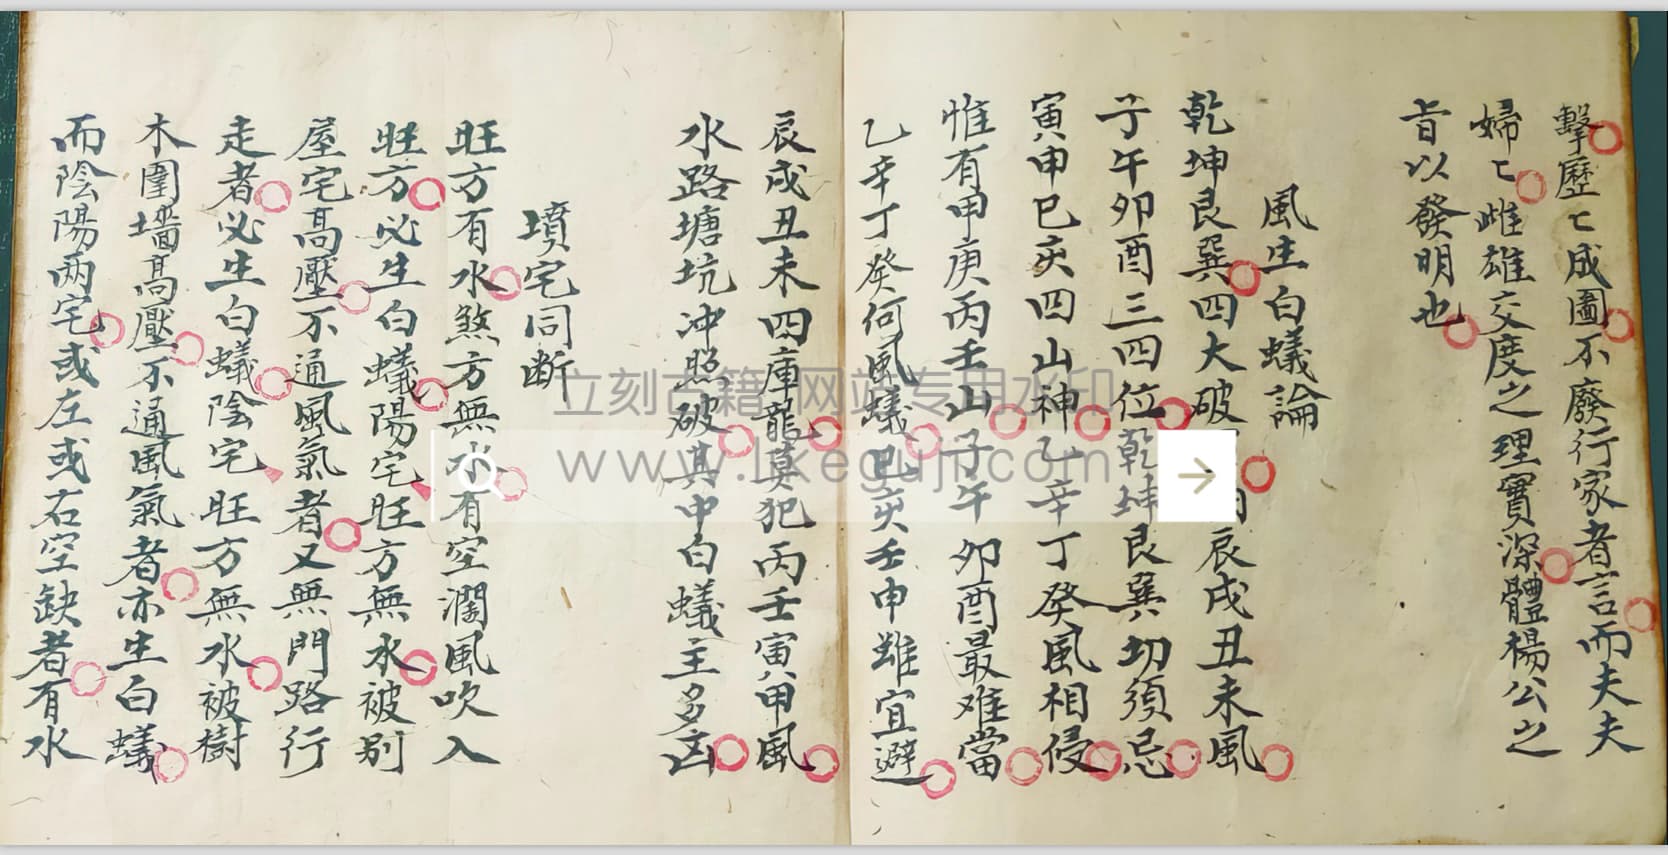 擊歷〻成圖不廢行家者言而夫夫
婦〻雌雄交度之理實深體楊公之
旨以發明也
風生白蟻論
乾坤艮巽四大破 辰戌丑未風
子午卯酉三四位乾坤艮巽切須忌
寅申巳亥四山神乙辛丁癸風相侵
惟有甲庚丙壬山子午卯酉最难當
乙辛丁癸何風蟻巳亥壬申雖宜避
辰戌丑未四庫龍莫犯丙壬寅甲風
水路塘坑冲照破其中白蟻主多凶
墳宅同断
旺方有水煞方無水有空濶風吹入
旺方必生白蟻陽宅旺方無水被别
屋宅高壓不通風氣者又無門路行
走者必生白蟻陰宅旺方無水被樹
木圍墻高壓不通風氣者亦生白蟻
而陰陽两宅或左或右空缺者有水
立刻古籍 网站专用水印
www.lkeguji.com